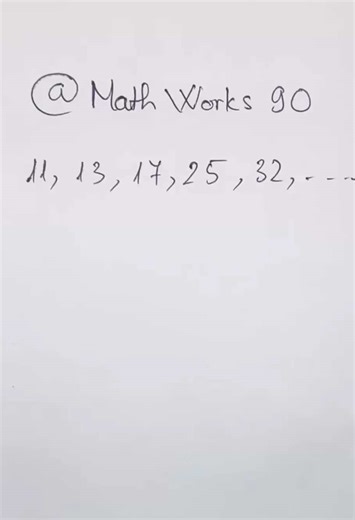 @ Math Works 90
11, 13, 17, 25, 32, ----